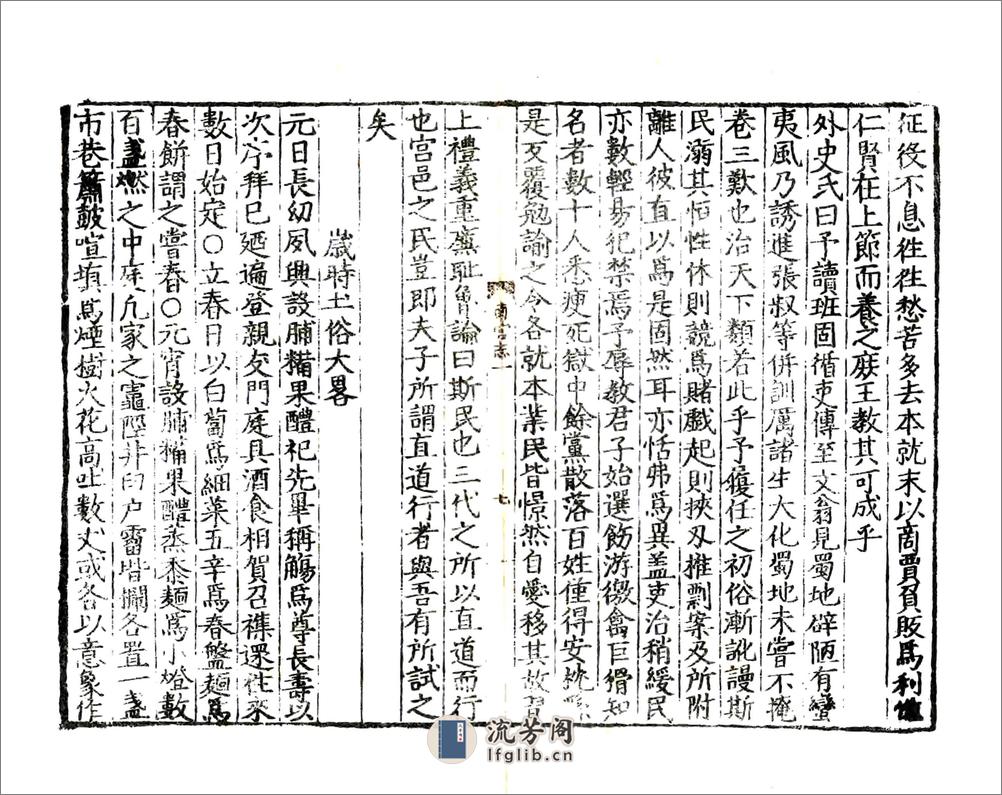 征役不息徃徃愁苦多去本就末以商賈貿販爲利
仁賢在上節而養之庶王教其可成乎
外史氏曰予讀班固循吏傳至文翁見蜀地僻陋有蠻
夷風乃誘進張叔等併訓厲諸生大化蜀地未嘗不掩
卷三歎也治天下類若此乎予履任之初俗漸訛謾斯
民溺其恒性休則競爲賭戲起則挾刃椎剽案及所附
離人彼直以爲是固然耳亦恬弗爲異盖吏治稍緩民
亦數輕易犯禁焉予辱教君子始選飭游徼禽巨猾知
名者數十人悉瘐死獄中餘黨散落百姓僅得安枕
是反覆勉諭之令各就本業民皆憬然自愛移其故習
上禮義重廉耻魯論曰斯民也三代之所以直道而行
也宫邑之民豈即夫子所謂直道行者與吾有所試之
矣
歲時土俗大畧
元日長幼夙興設脯糒果醴祀先畢稱觴爲尊長壽以
次序拜巳廼遍登親友門庭具酒食相賀召襍還徃來
數日始定○立春日以白蔔爲細菜五辛爲春盤麵爲
春餅謂之嘗春○元宵設脯糒果醴烝黍麵爲小燈數
百盞燃之中庭凢家之竈陘井臼户霤皆闌各置一盞
市巷簫鼓喧塡爲煙樹火花高吐數丈或各以意象作
南宫志一
七
流芳阁
lfglib.cn